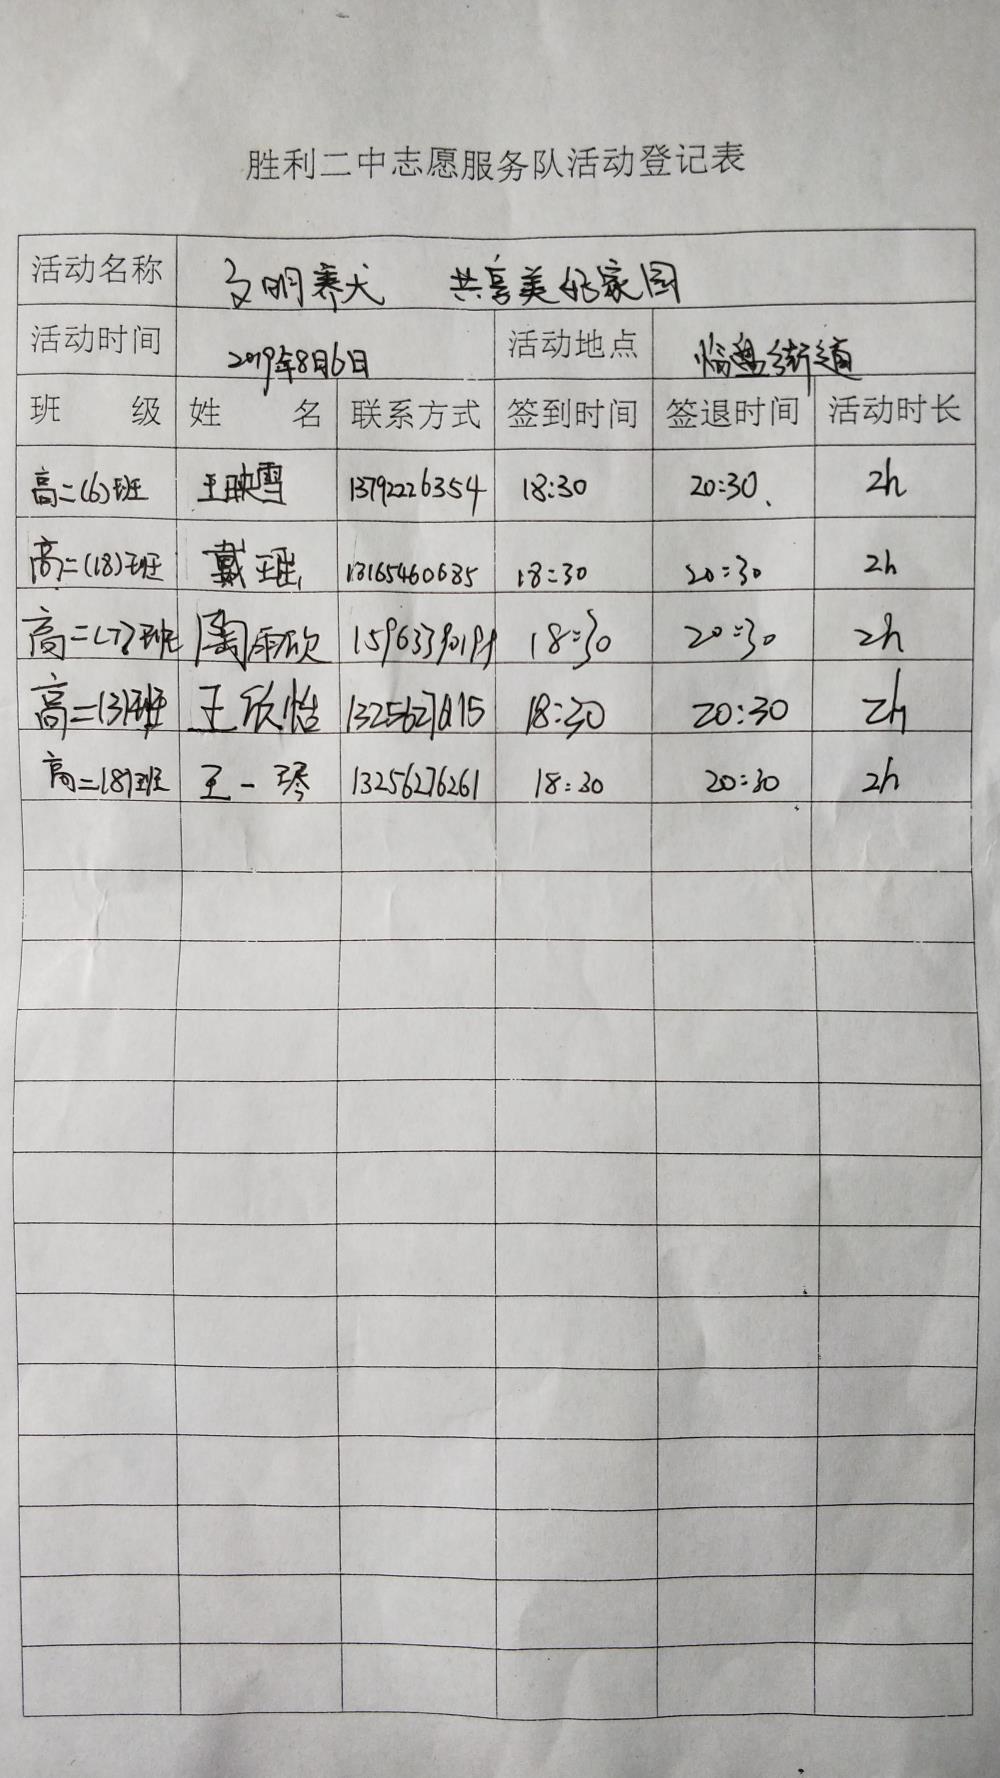 胜利二中志愿服务队活动登记表
活动名称 文明养犬 共享美好家园
活动时间 2019年8月6日 活动地点 临盘街道
班 级 姓 名 联系方式 签到时间 签退时间 活动时长
高二(6)班 王映雪 13792226354 18:30 20:30 2h
高二(18)班 戴瑶 13165460685 18:30 20:30 2h
高二(7)班 陶雨欣 18:30 20:30 2h
高二(3)班 王欣怡 18:30 20:30 2h
高二(8)班 王一琴 13256276261 18:30 20:30 2h